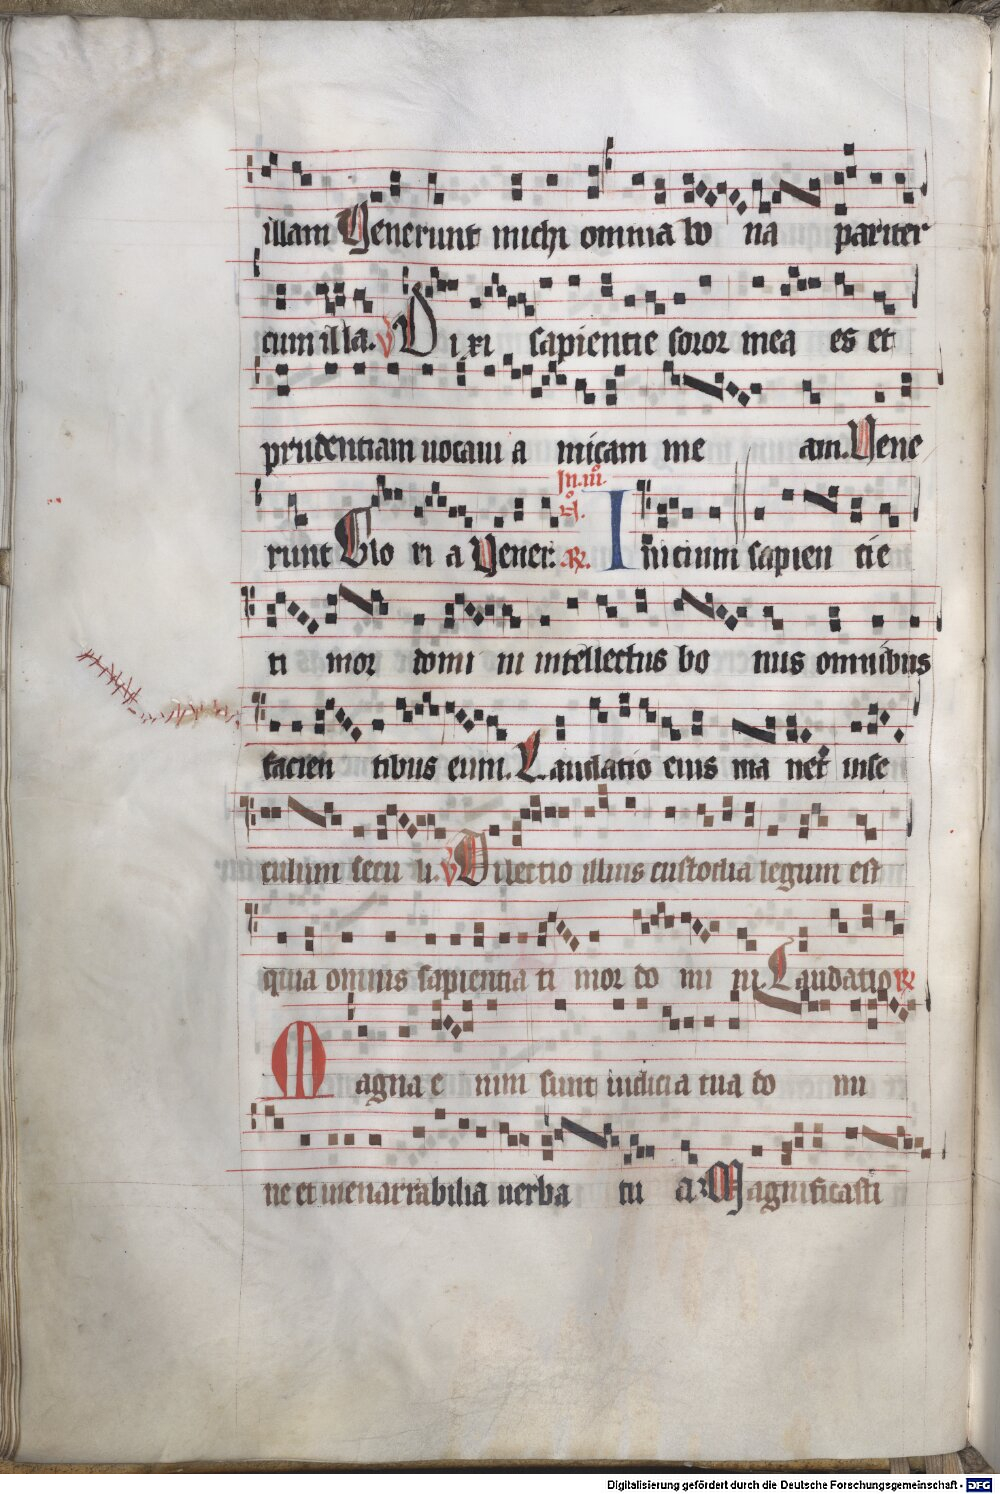 illam Uenerunt michi omnia bo na pariter
cum illa. V Dixi sapientie soror mea es et
prudentiam uocaui a micam me am. Uene
In. iii.
runt Glo ri a Uener. R. Inicium sapien tie
ti mor domi ni intellectus bo nus omnibus
facien tibus eum. Laudatio eius ma net inse
culum secu li. V Dilectio illius custodia legum est
quia omnis sapientia ti mor do mi ni. Laudatio R
Magna e nim sunt iudicia tua do mi
ne et inenarrabilia uerba tu a. Magnificasti
Digitalisierung gefördert durch die Deutsche Forschungsgemeinschaft - DFG